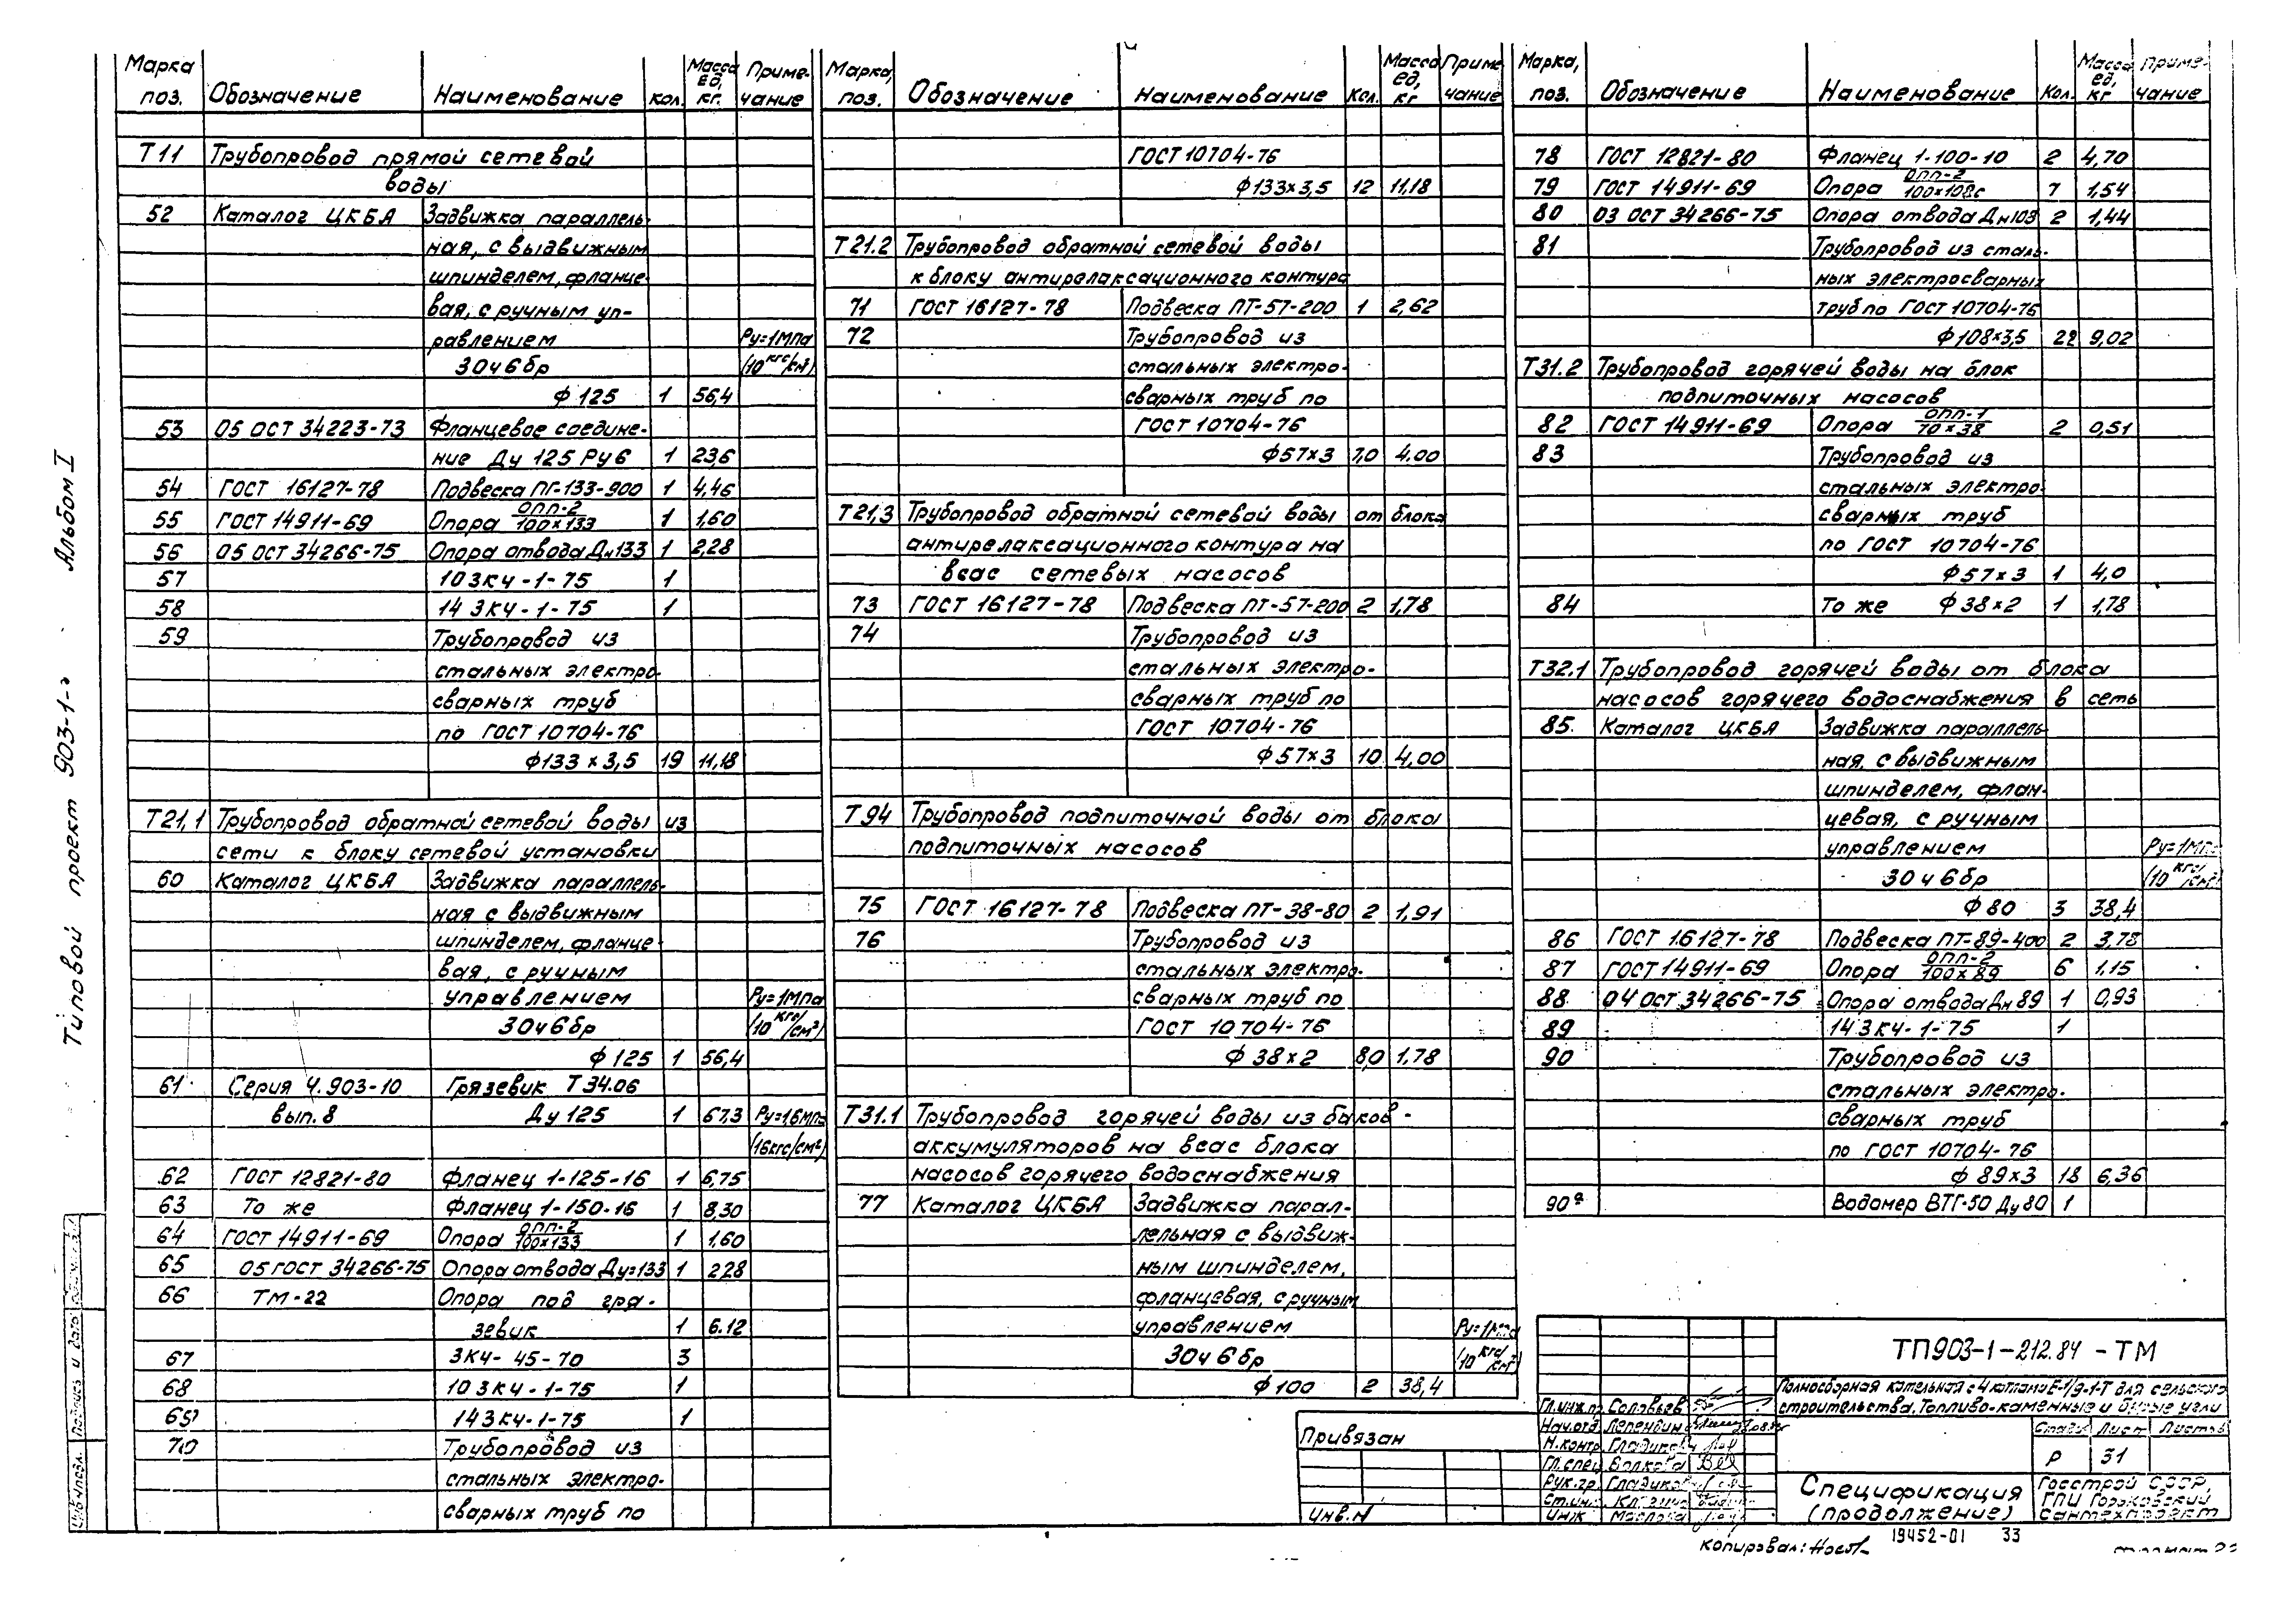 Марка поз. Обозначение Наименование кол. Масса ед, кг. Приме-чание
Т11 Трубопровод прямой сетевой
воды
52 Каталог ЦКБА Задвижка параллель-
ная, с выдвижным
шпинделем, фланце-
вая, с ручным уп-
равлением Ру=1МПа
30ч6бр (10 кгс/см²)
ф 125 1 56,4
53 05 ОСТ 34223-73 Фланцевое соедине-
ние Ду 125 Ру6 1 23,6
54 ГОСТ 16127-78 Подвеска ПГ-133-900 1 4,46
55 ГОСТ 14911-69 Опора ОПП-2/100х133 1 1,60
56 05 ОСТ 34266-75 Опора отвода Дн133 1 2,28
57 103К4-1-75 1
58 14 3К4-1-75 1
59 Трубопровод из
стальных электро-
сварных труб
по ГОСТ 10704-76
ф133 х 3,5 19 11,18
Т21,1 Трубопровод обратной сетевой воды из
сети к блоку сетевой установки
60 Каталог ЦКБА Задвижка параллель-
ная с выдвижным
шпинделем, фланце-
вая, с ручным
управлением Ру=1МПа
30ч6бр (10 кгс/см²)
ф 125 1 56,4
61 Серия 4.903-10 Грязевик Т34.06
вып. 8 Ду 125 1 67,3 Ру=1,6МПа
(16кгс/см²)
62 ГОСТ 12821-80 Фланец 1-125-16 1 6,75
63 То же Фланец 1-150-16 1 8,30
64 ГОСТ 14911-69 Опора ОПП-2/100х133 1 1,60
65 05 ГОСТ 34266-75 Опора отвода Ду=133 1 2,28
66 ТМ-22 Опора под гря-
зевик 1 6.12
67 3К4-45-70 3
68 10 3К4-1-75 1
69 143К4-1-75 1
70 Трубопровод из
стальных электро-
сварных труб по
Марка, поз. Обозначение Наименование Кол. Масса ед, кг Приме чание
ГОСТ 10704-76
ф133х3,5 12 11,18
Т21.2 Трубопровод обратной сетевой воды
к блоку антирелаксационного контура
71 ГОСТ 16127-78 Подвеска ПТ-57-200 1 2,62
72 Трубопровод из
стальных электро-
сварных труб по
ГОСТ 10704-76
ф57х3 7,0 4.00
Т21,3 Трубопровод обратной сетевой воды от блока
антирелаксационного контура на
всас сетевых насосов
73 ГОСТ 16127-78 Подвеска ПТ-57-200 2 1,78
74 Трубопровод из
стальных электро-
сварных труб по
ГОСТ 10704-76
ф57х3 10 4,00
Т94 Трубопровод подпиточной воды от блока
подпиточных насосов
75 ГОСТ 16127-78 Подвеска ПТ-38-80 2 1,91
76 Трубопровод из
стальных электро-
сварных труб по
ГОСТ 10704-76
ф 38х2 8,0 1,78
Т31.1 Трубопровод горячей воды из баков-
аккумуляторов на всас блока
насосов горячего водоснабжения
77 Каталог ЦКБА Задвижка парал-
лельная с выдвиж-
ным шпинделем,
фланцевая, с ручным
управлением Ру=1МПа
30ч6бр (10 кгс/см²)
ф100 2 38,4
Марка, поз. Обозначение Наименование Кол. Масса ед, кг Приме-чание
78 ГОСТ 12821-80 Фланец 1-100-10 2 4,70
79 ГОСТ 14911-69 Опора ОПП-2/100х108с 7 1,54
80 03 ОСТ 34266-75 Опора отвода Дн103 2 1,44
81 Трубопровод из сталь-
ных электросварных
труб по ГОСТ 10704-76
ф108х3,5 22 9,02
Т31.2 Трубопровод горячей воды на блок
подпиточных насосов
82 ГОСТ 14911-69 Опора ОПП-1/70х38 2 0,51
83 Трубопровод из
стальных электро-
сварных труб
по ГОСТ 10704-76
ф57х3 1 4,0
84 То же ф38х2 1 1,78
Т32.1 Трубопровод горячей воды от блока
насосов горячего водоснабжения в сеть
85. Каталог ЦКБА Задвижка параллель-
ная, с выдвижным
шпинделем, флан-
цевая, с ручным
управлением Ру=1МПа
30ч6бр (10 кгс/см²)
ф 80 3 38,4
86 ГОСТ 16127-78 Подвеска ПТ-89-400 2 3,78
87 ГОСТ 14911-69 Опора ОПП-2/100х89 6 1,15
88 04 ОСТ 34266-75 Опора отвода Дн 89 1 0,93
89 143К4-1-75 1
90 Трубопровод из
стальных электро-
сварных труб
по ГОСТ 10704-76
ф 89х3 18 6,36
90а Водомер ВТГ-50 Ду80 1
Типовой проект 903-1- Альбом I
Инв.№подл. Подпись и дата
Привязан
Инв.№
ТП903-1-212.84 -ТМ
Полносборная котельная с 4 котлами Е-1/9-1-Т для сельского
строительства. Топливо-каменные и бурые угли
Гл.инж.пр. Соловьев
Нач.отд.
Н.контр. Гладикова
Гл.спец. Волкова
Рук.гр. Гладикова
Ст.инж.
Инж. Маслова
Стадия Лист Листов
Р 31
Спецификация
(продолжение)
Госстрой СССР,
ГПИ Горьковский
Сантехпроект
Копировал:
19452-01 33